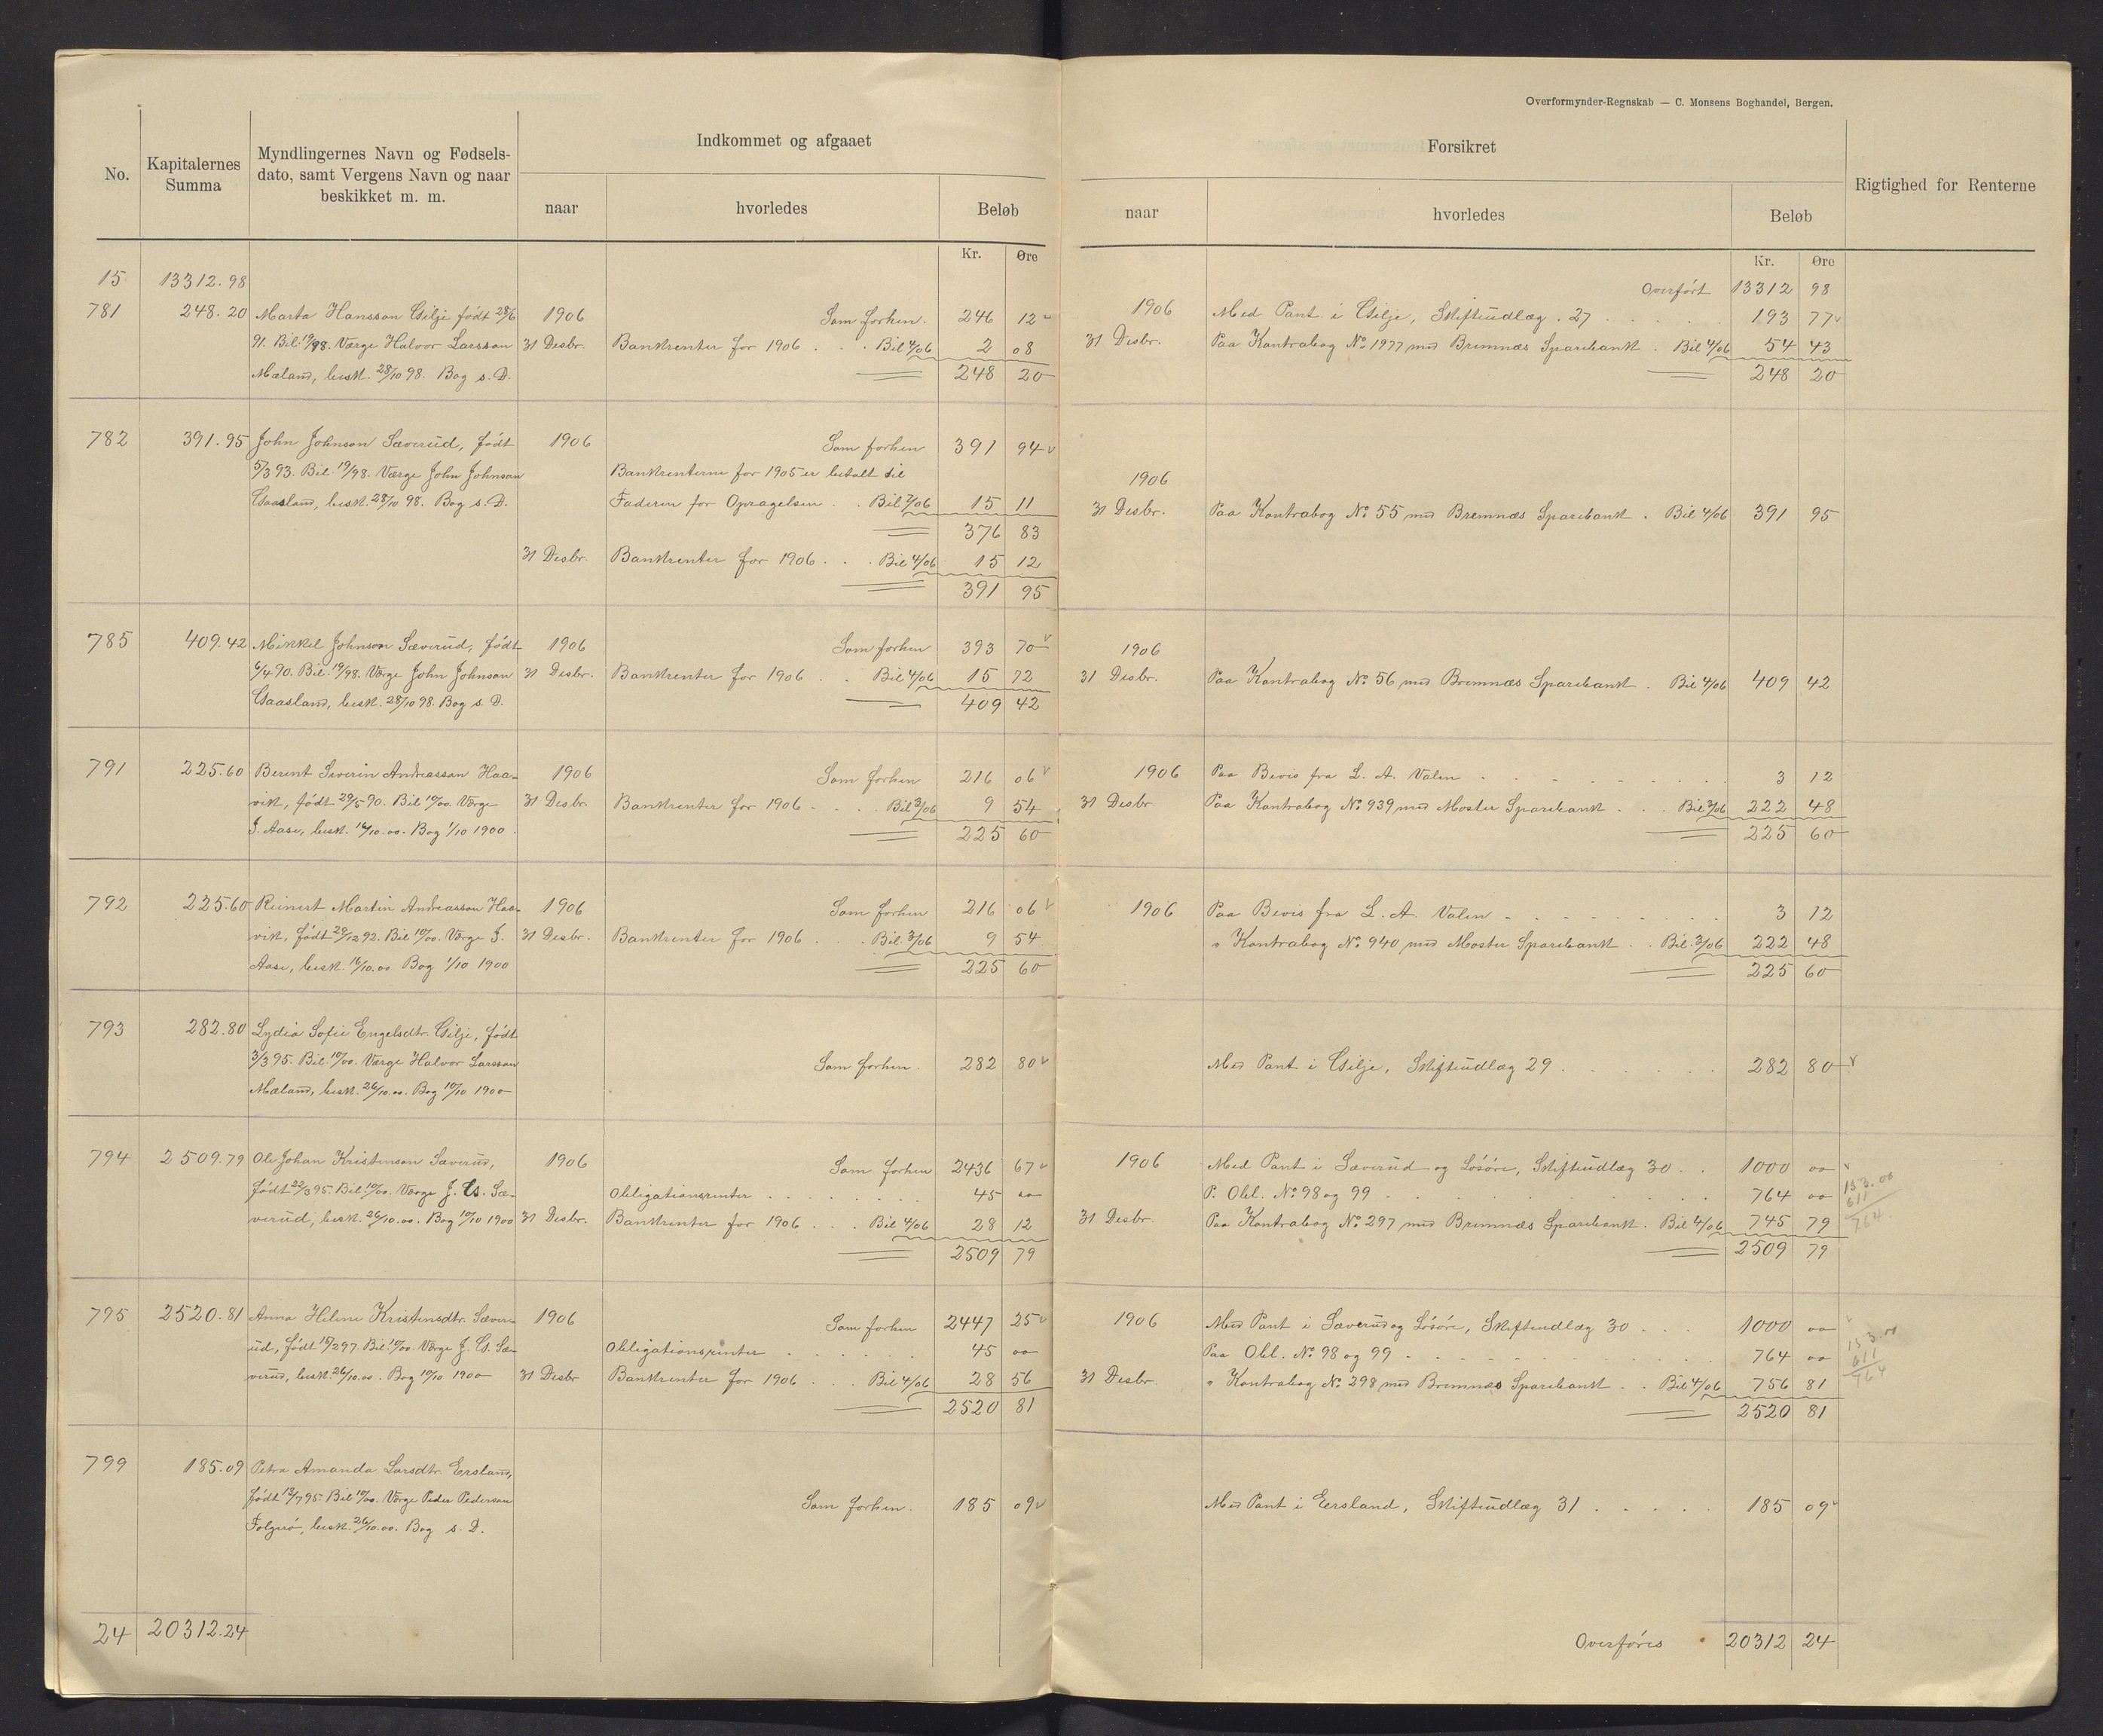 Overformynder-Regnskab — C. Monsens Boghandel, Bergen.
No.
Kapitalernes Summa
Myndlingernes Navn og Fødsels-
dato, samt Vergens Navn og naar
beskikket m. m.
Indkommet og afgaaet
naar
hvorledes
Beløb
Kr. Øre
Forsikret
naar
hvorledes
Beløb
Kr. Øre
Rigtighed for Renterne
15 13312.98
Overført 13312 98
781 248.20 Marta Hansson Gilje født 28/6 1906 Som forhen. 246 12
91. Bil. 19/98. Værge Halvor Larsson 31 Desbr. Bankrenter for 1906 . . . Bil 4/06 2 08
Mæland, besk. 28/10 98. Bog s. D. 248 20
1906 Med Pant i Gilje, Skifteudlæg . 27 193 77
31 Desbr. Paa Kontrabog No. 1977 med Bremnæs Sparebank . Bil 4/06 54 43
248 20
782 391.95 John Johnson Sæverud, født 1906 Som forhen 391 94
5/3 93. Bil. 19/98. Værge John Johnson Bankrenterne for 1905 er betalt til
Gaasland, besk. 28/10 98. Bog s. D. Faderen for Opragelsen . . Bil 7/06 15 11
376 83
31 Desbr. Bankrenter for 1906 . . . Bil 4/06 15 12
391 95
1906
31 Desbr. Paa Kontrabog No. 55 med Bremnæs Sparebank . Bil 4/06 391 95
785 409.42 Mikkel Johnson Sæverud, født 1906 Som forhen 393 70
6/4 90. Bil. 19/98. Værge John Johnson 31 Desbr. Bankrenter for 1906 . . Bil 4/06 15 72
Gaasland, besk. 28/10 98. Bog s. D. 409 42
1906
31 Desbr. Paa Kontrabog No. 56 med Bremnæs Sparebank . Bil 4/06 409 42
791 225.60 Berent Severin Andreasson Haa- 1906 Som forhen 216 06
vik, født 29/5 90. Bil 10/00. Værge 31 Desbr. Bankrenter for 1906 . . . . Bil 3/06 9 54
J. Aase, besk. 16/10.00. Bog 1/10 1900. 225 60
1906 Paa Bevis fra L. A. Valen 3 12
31 Desbr Paa Kontrabog No. 939 med Moster Sparebank . . . Bil 3/06 222 48
225 60
792 225.60 Reinert Martin Andreasson Haa- 1906 Som forhen 216 06
vik, født 28/12 92. Bil 10/00. Værge J. 31 Desbr. Bankrenter for 1906 . . . Bil. 3/06 9 54
Aase, besk. 16/10.00 Bog 1/10 1900 225 60
1906 Paa Bevis fra L. A. Valen 3 12
" Kontrabog No. 940 med Moster Sparebank . . Bil. 3/06 222 48
225 60
793 282.80 Lydia Sofie Engelsdtr. Gilje, født
3/3 95. Bil. 10/00. Værge Halvor Larsson Som forhen . 282 80
Mæland, besk. 26/10.00. Bog 10/10 1900
Med Pant i Gilje, Skifteudlæg 29 282 80
794 2509.79 Ole Johan Kristenson Sæverud, 1906 Som forhen 2436 67
født 22/3 95. Bil. 10/00. Værge J. G. Sæ- Obligationsrenter 45 00
verud, besk. 26/10.00. Bog 10/10 1900 31 Desbr. Bankrenter for 1906 . . . Bil 4/06 28 12
2509 79
1906 Med Pant i Sæverud og Løsøre, Skifteudlæg 30 . . 1000 00
P. Obl. No. 98 og 99 764 00
31 Desbr. Paa Kontrabog No. 297 med Bremnæs Sparebank . Bil 4/06 745 79
2509 79
153.00
611
764.
795 2520.81 Anna Helene Kristensdtr. Sæver- 1906 Som forhen 2447 25
ud, født 15/2 97. Bil. 10/00. Værge J. G. Sæ- Obligationsrenter 45 00
verud, besk. 26/10.00. Bog 10/10 1900 31 Desbr Bankrenter for 1906 . . . Bil 4/06 28 56
2520 81
1906 Med Pant i Sæverud og Løsøre, Skifteudlæg 30 . . . 1000 00
Paa Obl. No. 98 og 99 764 00
31 Desbr. " Kontrabog No. 298 med Bremnæs Sparebank . . Bil 4/06 756 81
2520 81
153.00
611
764
799 185.09 Petra Amanda Larsdtr. Ersland,
født 13/7 95. Bil 10/00. Værge Peder Pederson Som forhen. 185 09
Folgerø, besk. 26/10.00. Bog s. D.
Med Pant i Eersland, Skifteudlæg 31 185 09
24 20312.24
Overføres 20312 24